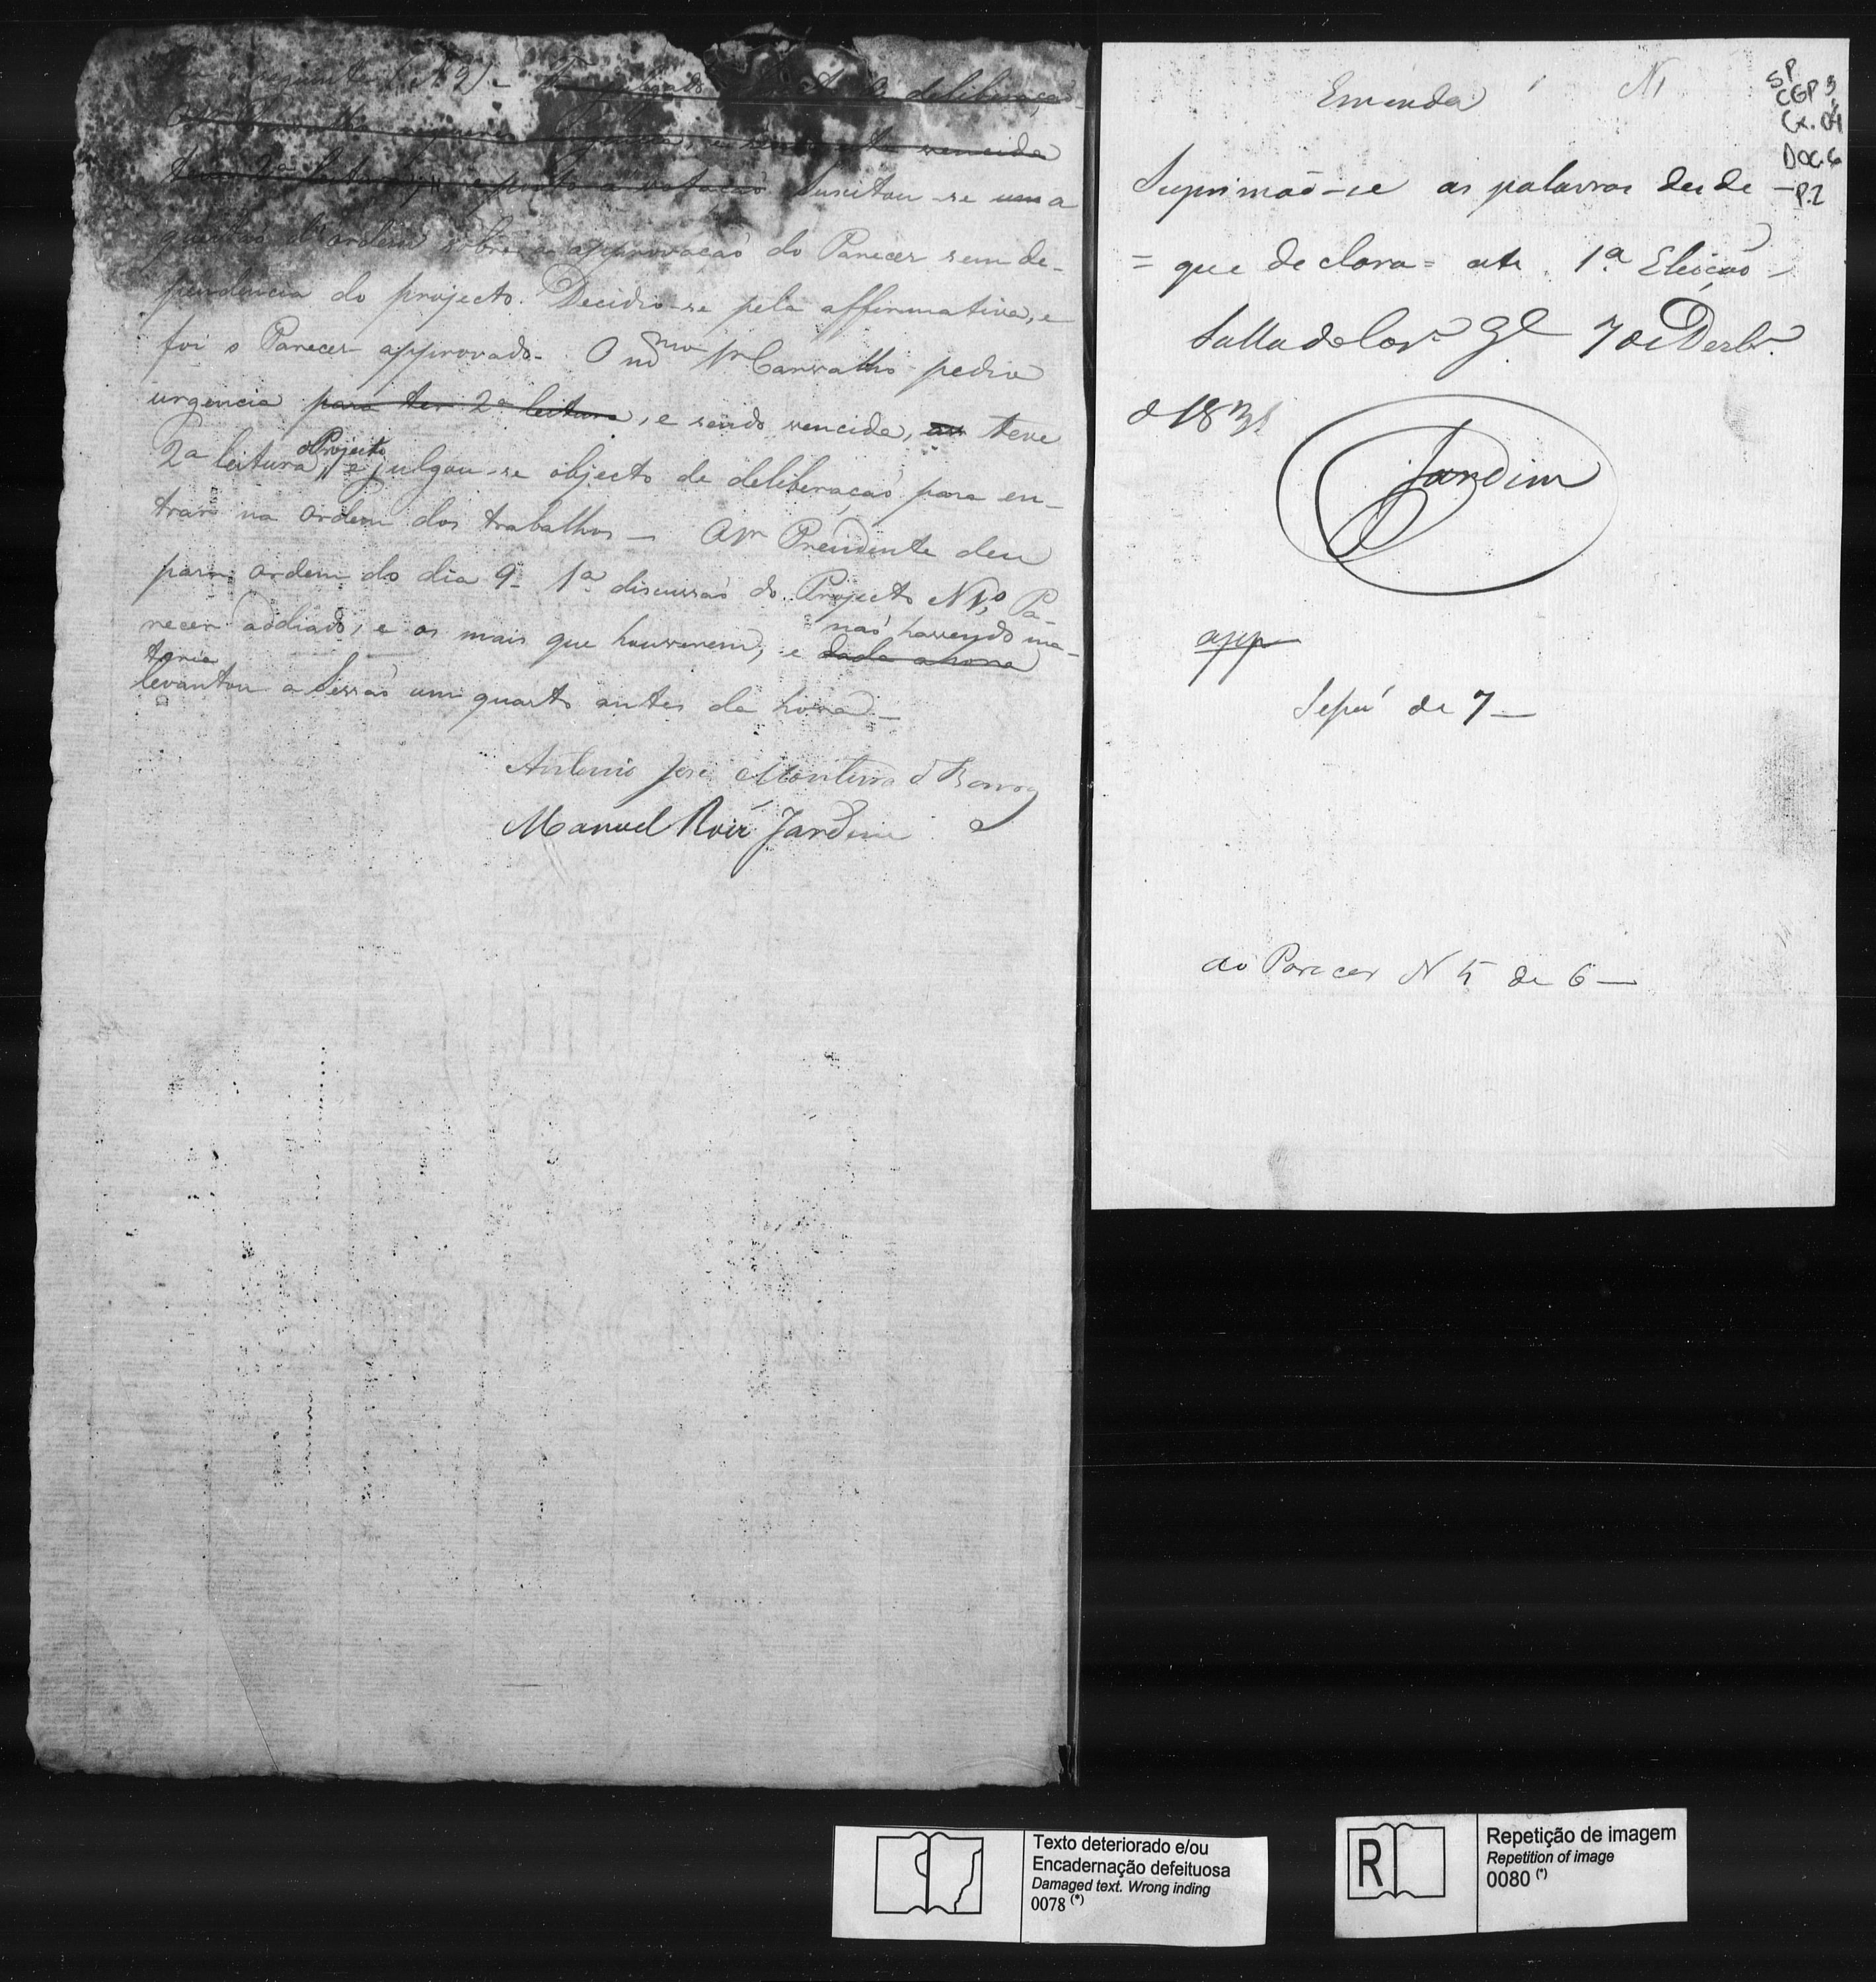 seguinte (N 2) - deliberação
vencida
e posto a votação Suscitou-se uma
questaõ d'ordem sobre a approvaçaõ do Parecer sem de-
pendencia do projecto. Decidio-se pela affirmativa, e
foi o Parecer approvado. O Carvalho pedio
urgencia para ter 2ª leitura, e sendo vencida, teve
2ª leitura o Projecto, e julgou-se objecto de deliberaçaõ para en-
trar na ordem dos trabalhos — O Sr Presidente deu
para ordem do dia 9 - 1ª discussaõ do Projecto N 1º, Pa-
recer addiado, e os mais que houverem, e dada a hora naõ havendo ma-
teria
levantou a Sessaõ um quarto antes da hora —
Antonio José Monteiro d Barros
Manuel Roiz Jardim
Emenda N1
SP
CGP 3,
Cx. 04
DOC. 6
P. 2
Suprimaõ-se as palavras desde —
= que declara = ate 1.ª Eleiçaõ -
Salla do Con.º Gl 7 de Dezbr.º
d 1831
Jardim
app
Sessaõ de 7 —
ao Parecer N 5 de 6 —
Texto deteriorado e/ou
Encadernação defeituosa
Damaged text. Wrong inding
0078 (*)
R
Repetição de imagem
Repetition of image
0080 (*)